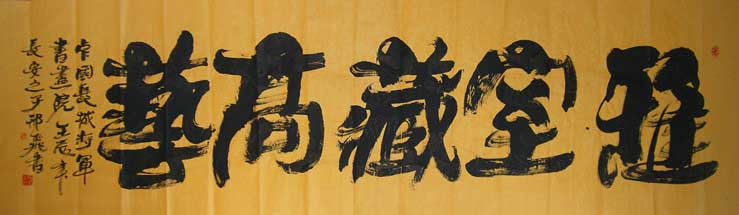 雅室藏高藝
中國長城將軍
書畫院 壬辰年
長安之子邢燕書